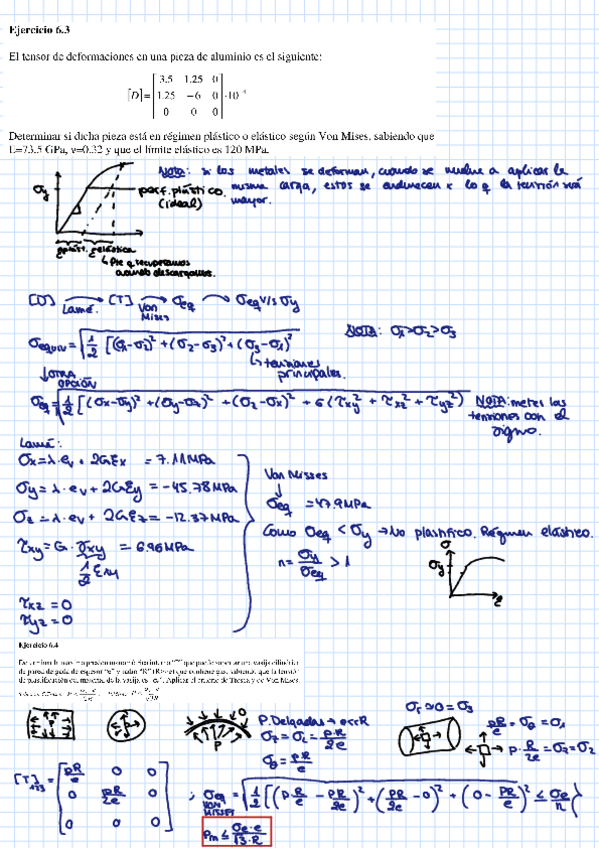 Ejercicio 6.3
El tensor de deformaciones en una pieza de aluminio es el siguiente:
[D] = [ 3.5 1.25 0
1.25 -6 0 ·10⁻⁴
0 0 0 ]
Determinar si dicha pieza está en régimen plástico o elástico según Von Mises, sabiendo que
E=73.5 GPa, ν=0.32 y que el límite elástico es 120 MPa.
Nota: si los metales se deforman, cuando se vuelve a aplicar la
misma carga, estos se endurecen x lo q la tensión será
mayor.
σy
perf. plástico.
(ideal)
εplást. εelástica
↳ Ple q recuperamos
cuando descargamos.
[D] → [T] → σeq → σeq v/s σy
Lamé. Von
Mises
σequiv = √1/2 [(σ1-σ2)² + (σ2-σ3)² + (σ3-σ1)²
NOTA: σ1>σ2>σ3
↳ tensiones
principales.
↓OTRA
OPCIÓN
σeq = √1/2 [(σx-σy)² + (σy-σz)² + (σz-σx)² + 6(τxy² + τxz² + τyz²)
NOTA: meter las
tensiones con el
signo.
Lamé:
σx = λ·ev + 2Gεx = 7.11 MPa
σy = λ·ev + 2Gεy = -45.78 MPa
σz = λ·ev + 2Gεz = -12.37 MPa
τxy = G·γxy = 6.96 MPa
1/2 εxy
τxz = 0
τyz = 0
Von Misses
↓
σeq = 47.9 MPa
Como σeq < σy → No plastifico. Régimen elástico.
n = σy/σeq > 1
σ
σy
ε
Ejercicio 6.4
P
P. Delgadas → e<<R
σz = σL = P·R/2e
σθ = P·R/e
σr ≃ 0 = σ3
PR/e = σθ = σ1
P·R/2e = σz = σ2
[T]123 = [ PR/e 0 0
0 PR/2e 0
0 0 0 ]
; σeq = √1/2 [(P·R/e - PR/2e)² + (PR/2e - 0)² + (0 - P·R/e)² ≤ σe/n
VON
MISSES
Pm ≤ σe·e/√3·R